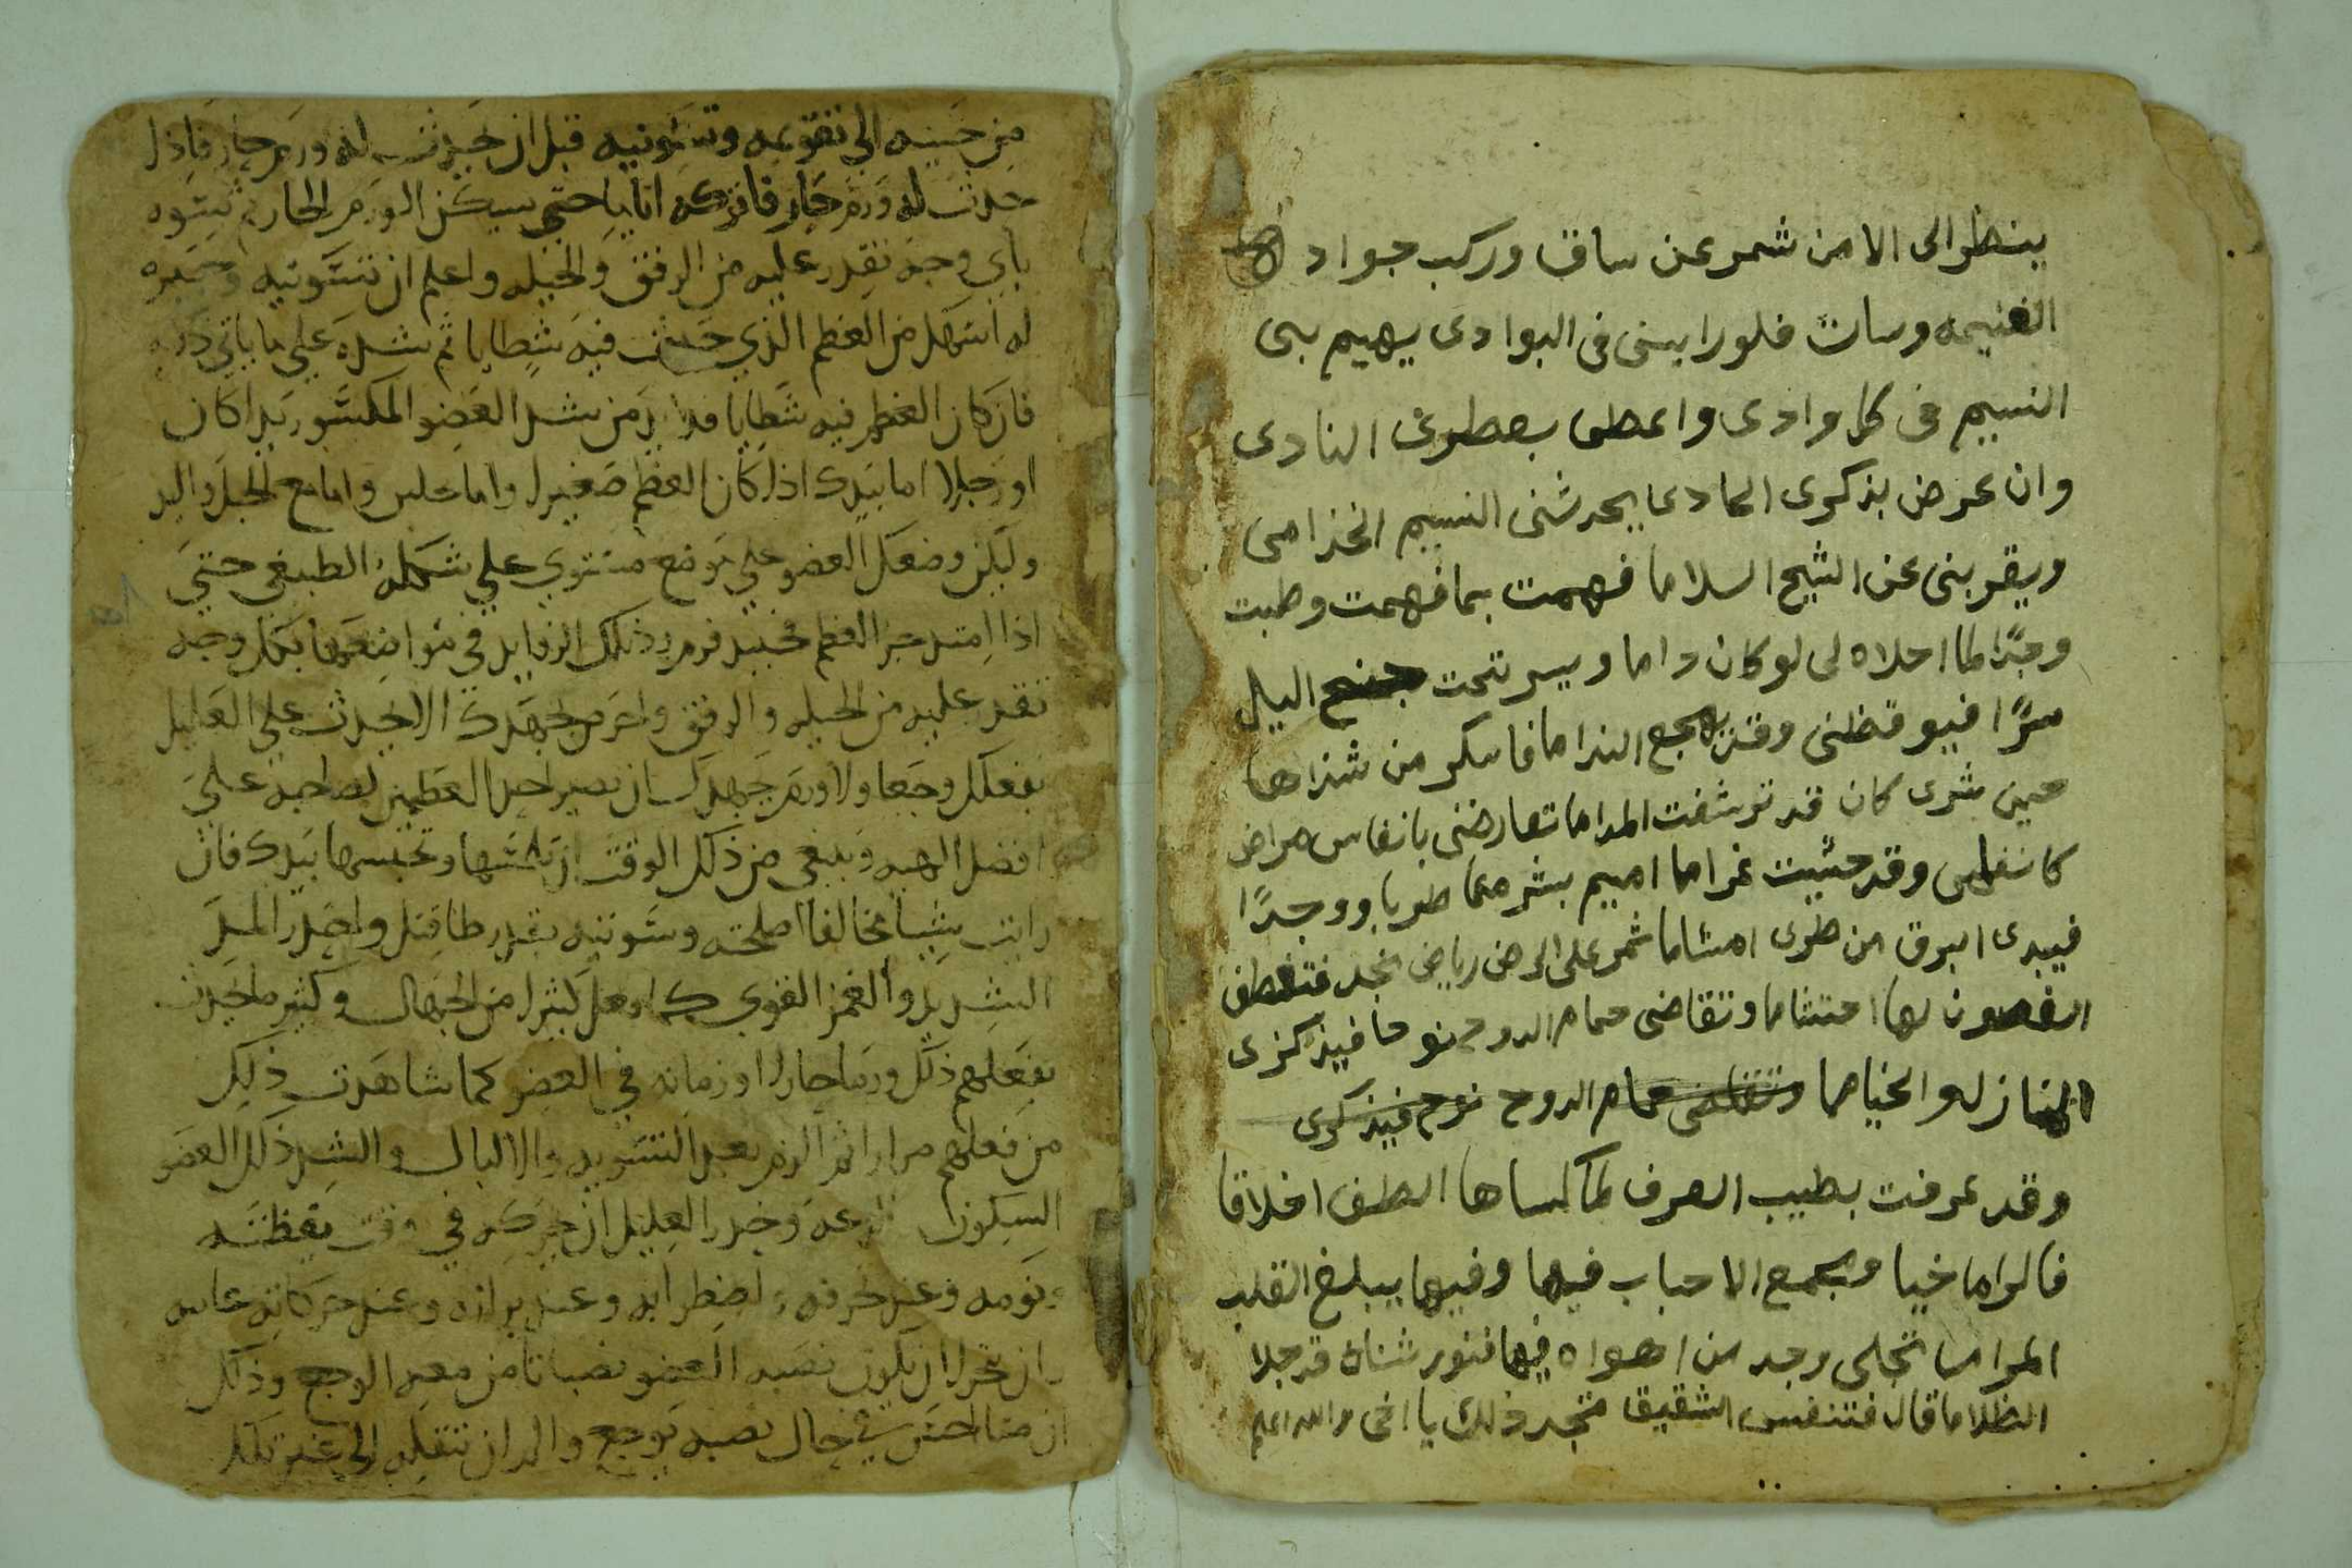 ينظر الى الا من شمر عن ساق وركب جواد
الغنيمه وساق فلو رايتنى فى البوادى يهيم بى
النسيم فى كل وادى واعطر بعطرى النادى
وان عرض بذكرى الحادى يحدثنى النسيم الخزامى
ويقربنى عن الشيح السلاما فهمت بما فهمت وطبت
وجدًا لما احلاه لى لو كان داما ويسر تحت جنح اليل
سرًا فيوقظنى وقد هجع الندامافاسكر من شذاها
حين شرى كان قد ترشفت المداما تعارضنى بانفاس مراض
كانفاسى وقد حشيت غراما اميم بشرمما طربا ووجدًا
فيبدى ابرق من طرى امشاما تمر على الرض رياض نجد فتعطف
الغصون لها احتشاما وتقاضى حمام الدوح نوحا فيذكرى
المنازلو الخياما وتتقاضى حمام الدوح نوح فيذكرى
وقد عرفت بطيب العرف لما كساها الطف اخلاقا
فالراما خيا وبجمع الاحباب فيها وفيها يبلغ القلب
المراما تجلى وجد من اهواه فيها فنور سناه قد جلا
الظلاما قال فتنفس الشقيق فتجد ذلك يا اخى والله اعلم
من حينه الي تقويمه وتسويته قبل ان يحدث له ورم حار فاذا
حدث له ورم حار فاتركه اياما حتى يسكن الورم الحار ثم تسوه
باي وجه تقدر عليه من الرفق والحيله واعلم ان تسويته وجبره
له اسهل من العظم الذي حدث فيه شظايا ثم شده علي ما ياتي ذكره
فان كان العظم فيه شظايا فلا بد من شد العضو المكسور يدا كان
او رجلا اما بيدك اذا كان العظم صغيرا واما بحبلين واما مع الحبل واليد
وليكن وضعك العضو علي موضع مستوي علي شكله الطبيعي حتي
اذا امتد جبر العظم فحينيد فرم رد تلك الزوايد في مواضعها بكل وجه
تقدر عليه من الحيله والرفق واحرص جهدك الا يحدث علي العليل
بفعلك وجعا ولا ورم جهدك ان تصير احد العظمين لصاحبه علي
افضل الهيه وينبغي من ذلك الوقت ان تلمسها وتحبسها بيدك فان
رايت شيا مخالفا اصلحته وسويته بقدر طاقتك واحذر المد
الشديد والغمز القوي كما يفعل كثيرا من الجهال وكثير ما يحدث
بفعلهم ذلك ورما حارا او زمانه في العضو كما شاهدت ذلك
من فعلهم مرارا ثم الزم بعد التسويه والشد ذلك العضو
السكون والدعه وحذر العليل ان يحركه في وقت يقظته
ونومه وعند واضطرابه وعند برازه وعند حركاته
وان تحرا ان يكون نصبه العضو نصبا تامن معه الوجع وذلك
ان متا احس في حال نصبه توجع والم ان تنقله الي غير تلك